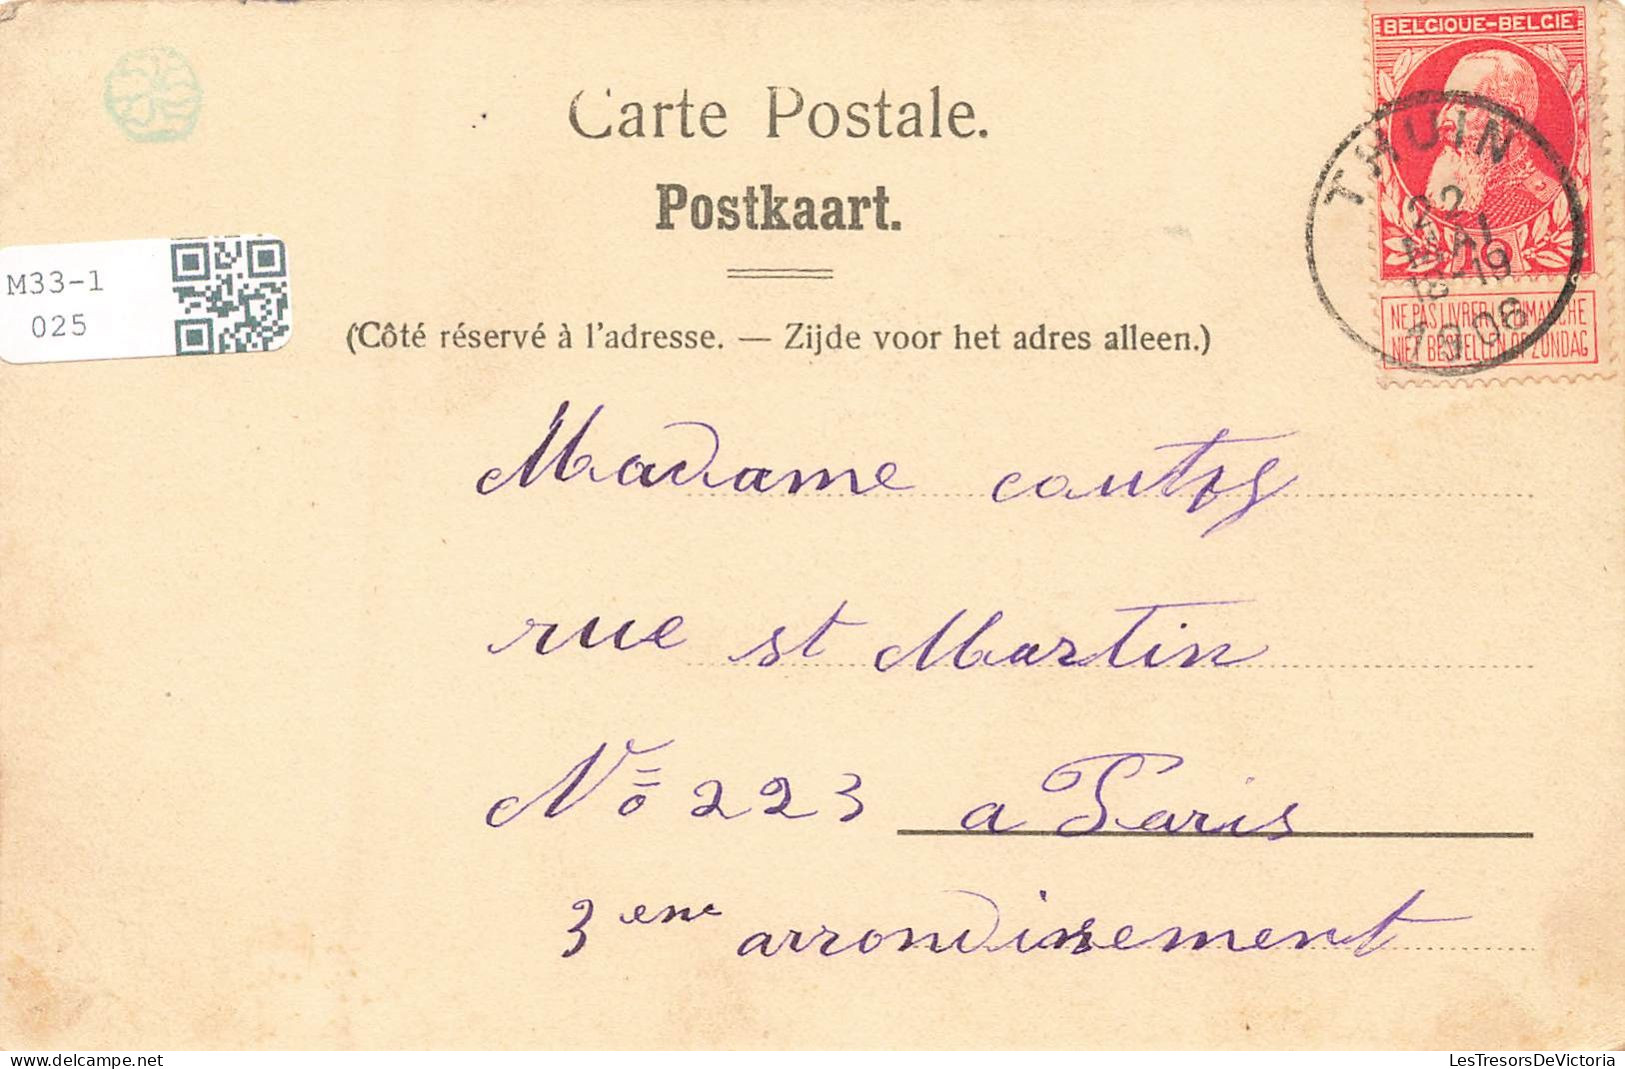 BELGIQUE-BELGIE
Carte Postale.
Postkaart.
THUIN
22
MAI
18-19
1906
NE PAS LIVRER LE DIMANCHE
NIET BESTELLEN OP ZONDAG
M33-1
025
(Côté réservé à l'adresse. — Zijde voor het adres alleen.)
Madame
rue st Martin
No 223 a Paris
3eme arrondissement
LesTresorsDeVictoria
www.delcampe.net